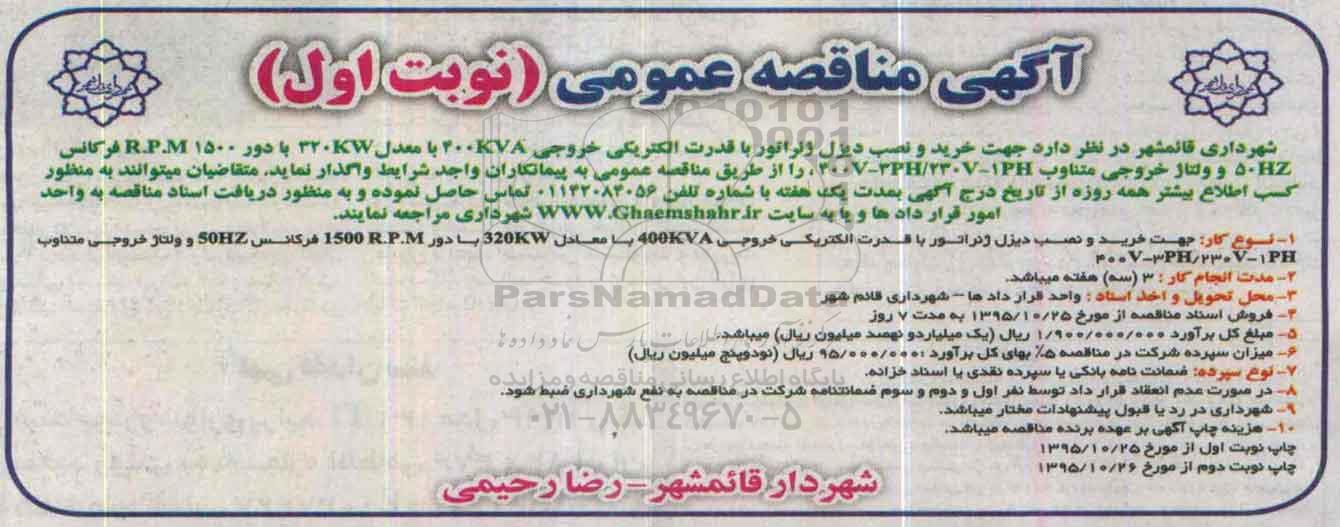 آگهی مناقصه عمومی (نوبت اول)
شهرداری قائمشهر در نظر دارد جهت خرید و نصب دیزل ژنراتور با قدرت الکتریکی خروجی ۴۰۰KVA با معدل ۳۲۰KW با دور ۱۵۰۰ R.P.M فرکانس
۵۰HZ و ولتاژ خروجی متناوب ۴۰۰V-۳PH/۲۳۰V-۱PH، را از طریق مناقصه عمومی به پیمانکاران واجد شرایط واگذار نماید. متقاضیان میتوانند به منظور
کسب اطلاع بیشتر همه روزه از تاریخ درج آگهی بمدت یک هفته با شماره تلفن ۰۱۱۴۲۰۸۴۰۵۶ تماس حاصل نموده و به منظور دریافت اسناد مناقصه به واحد
امور قرار داد ها و یا به سایت WWW.Ghaemshahr.ir شهرداری مراجعه نمایند.
۱- نوع کار: جهت خرید و نصب دیزل ژنراتور با قدرت الکتریکی خروجی 400KVA با معادل 320KW با دور 1500 R.P.M فرکانس 50HZ و ولتاژ خروجی متناوب
۴۰۰V-۳PH/۲۳۰V-۱PH
۲- مدت انجام کار : ۳ (سه) هفته میباشد.
۳- محل تحویل و اخذ اسناد : واحد قرار داد ها – شهرداری قائم شهر
۴- فروش اسناد مناقصه از مورخ ۱۳۹۵/۱۰/۲۵ به مدت ۷ روز
۵- مبلغ کل برآورد ۱/۹۰۰/۰۰۰/۰۰۰ ریال (یک میلیاردو نهصد میلیون ریال) میباشد.
۶- میزان سپرده شرکت در مناقصه ۵٪ بهای کل برآورد :۹۵/۰۰۰/۰۰۰ ریال (نودوپنج میلیون ریال)
۷- نوع سپرده: ضمانت نامه بانکی یا سپرده نقدی یا اسناد خزانه.
۸- در صورت عدم انعقاد قرار داد توسط نفر اول و دوم و سوم ضمانتنامه شرکت در مناقصه به نفع شهرداری ضبط شود.
۹- شهرداری در رد یا قبول پیشنهادات مختار میباشد.
۱۰- هزینه چاپ آگهی بر عهده برنده مناقصه میباشد.
چاپ نوبت اول از مورخ ۱۳۹۵/۱۰/۲۵
چاپ نوبت دوم از مورخ ۱۳۹۵/۱۰/۲۶
شهردار قائمشهر – رضا رحیمی
ParsNamadData
پایگاه اطلاع رسانی مناقصه و مزایده
۰۲۱-۸۸۳۴۹۶۷۰-۵